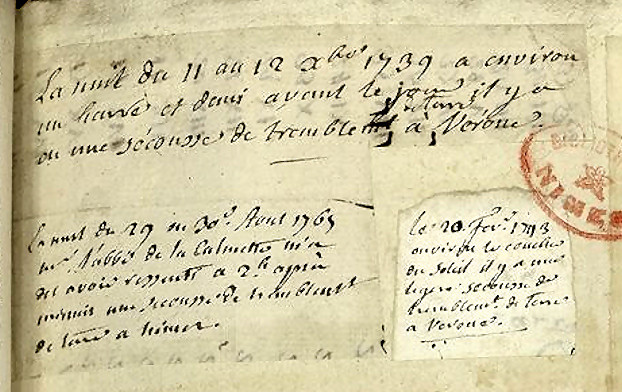 La nuit du 11 au 12 Xbre 1739 a environ
un heure et demi avant le jour il y a
eu une sécousse de tremblemt de terre à Verone.
La nuit du 29 au 30e. Aout 1767
mr. l'abbé de la Calmette m'a
dit avoir ressenti a 2h après
minuit une secousse de tremblemt
de terre a nimes.
le 20 Fevr. 1743
environ le coucher
du soleil il y a une
legere secousse de
tremblemt. de terre
a Verone.
BIBLIOTH
NIMES